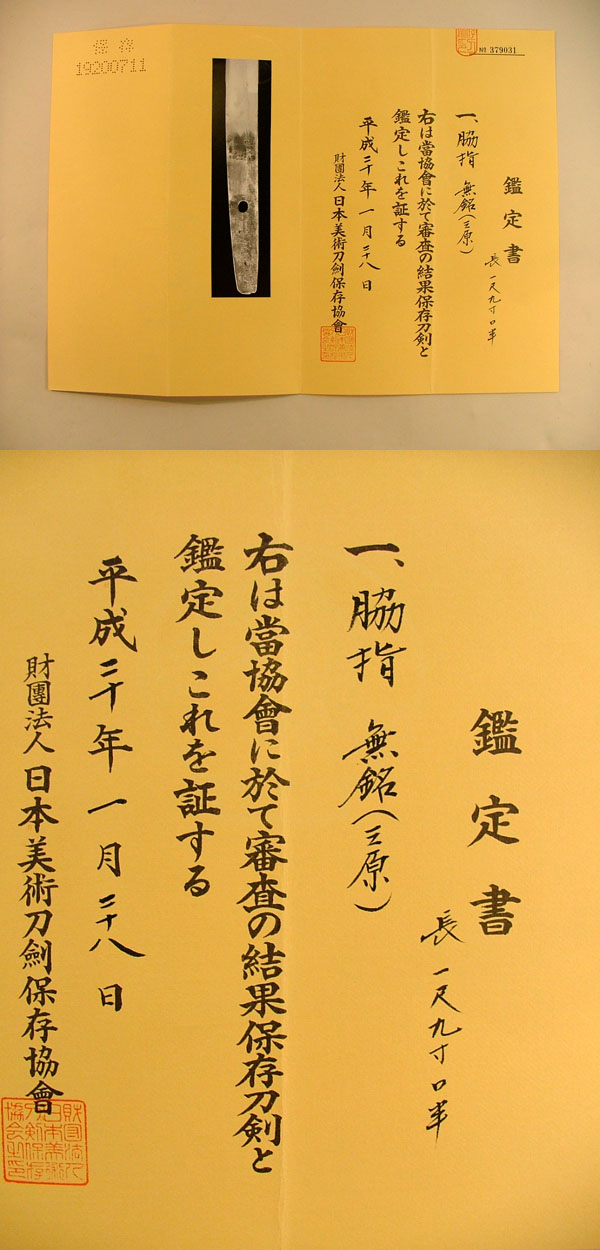 保存
19200711
№ 379031
鑑定書
一、脇指 無銘(三原)
長一尺九寸口半
右は當協會に於て審査の結果保存刀剣と
鑑定しこれを証する
平成二十年一月二十八日
財團法人日本美術刀劍保存協會
鑑定書
一、脇指 無銘(三原)
長一尺九寸口半
右は當協會に於て審査の結果保存刀剣と
鑑定しこれを証する
平成二十年一月二十八日
財團法人日本美術刀劍保存協會